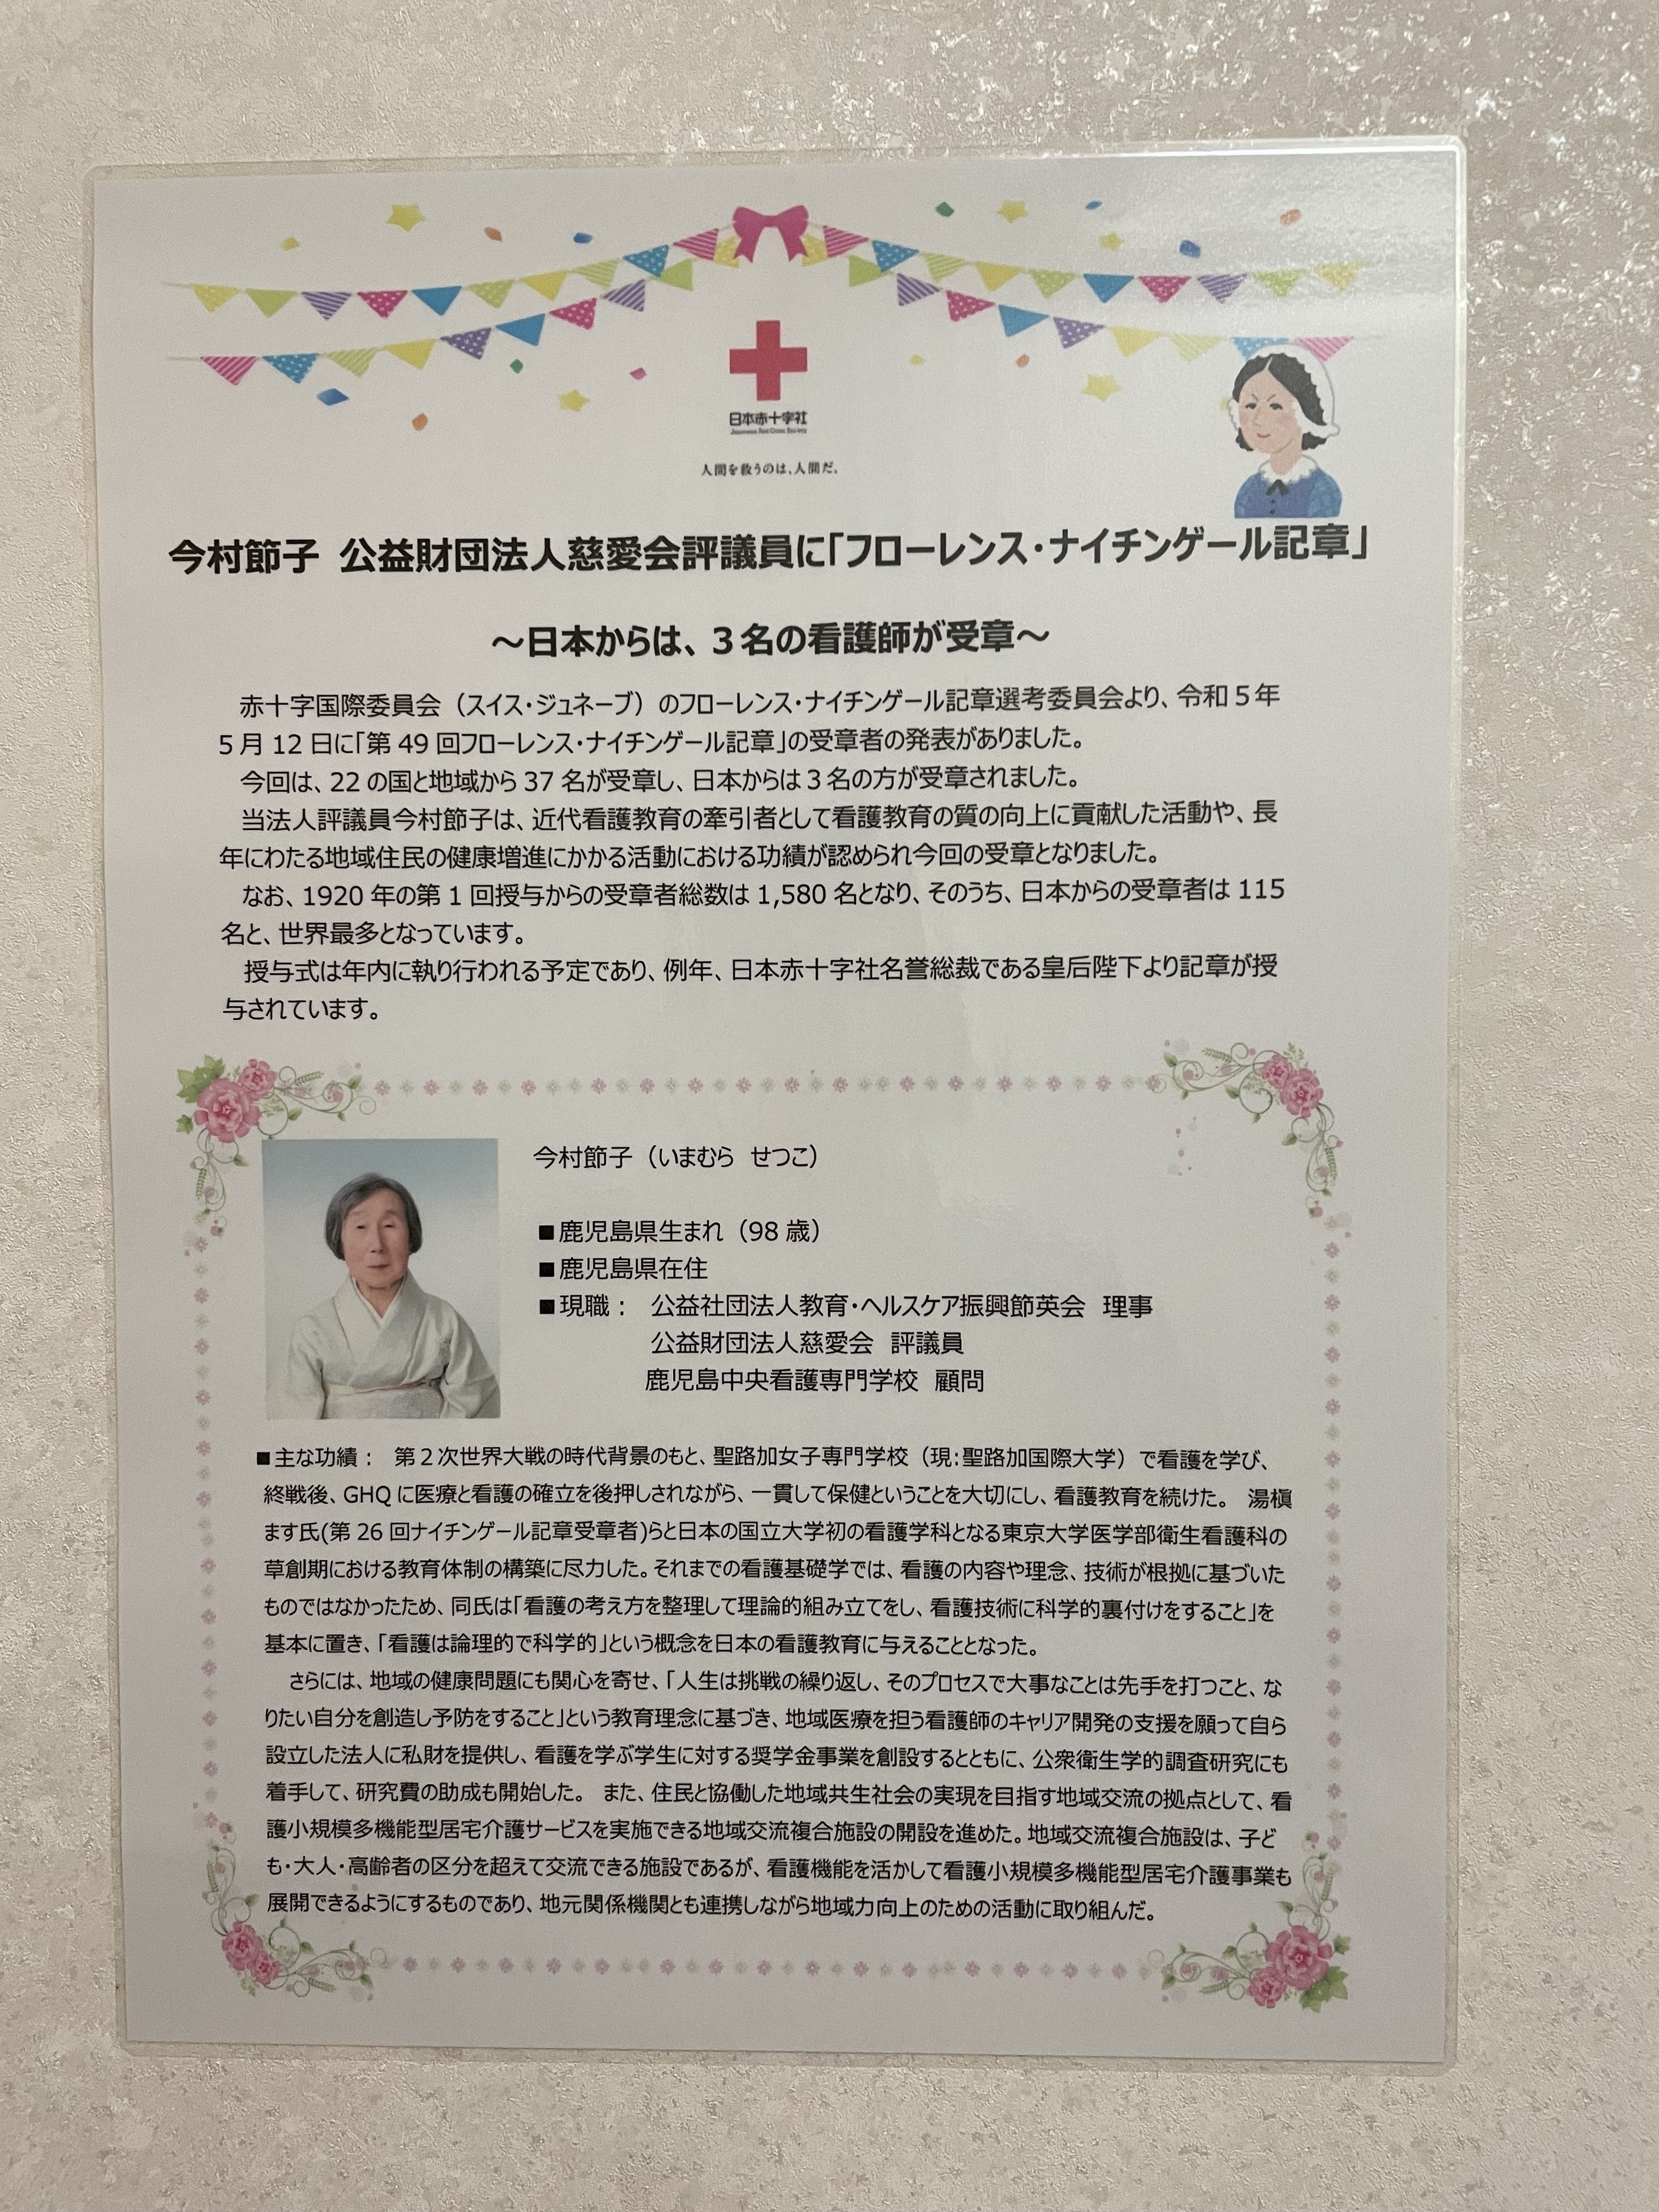 日本赤十字社
Japanese Red Cross Society
人間を救うのは、人間だ。
今村節子 公益財団法人慈愛会評議員に「フローレンス・ナイチンゲール記章」
～日本からは、３名の看護師が受章～
赤十字国際委員会（スイス・ジュネーブ）のフローレンス・ナイチンゲール記章選考委員会より、令和５年
５月 12 日に「第 49 回フローレンス・ナイチンゲール記章」の受章者の発表がありました。
今回は、22 の国と地域から 37 名が受章し、日本からは３名の方が受章されました。
当法人評議員今村節子は、近代看護教育の牽引者として看護教育の質の向上に貢献した活動や、長
年にわたる地域住民の健康増進にかかる活動における功績が認められ今回の受章となりました。
なお、1920 年の第 1 回授与からの受章者総数は 1,580 名となり、そのうち、日本からの受章者は 115
名と、世界最多となっています。
授与式は年内に執り行われる予定であり、例年、日本赤十字社名誉総裁である皇后陛下より記章が授
与されています。
今村節子（いまむら　せつこ）
■鹿児島県生まれ（98 歳）
■鹿児島県在住
■現職：　公益社団法人教育・ヘルスケア振興節英会　理事
公益財団法人慈愛会　評議員
鹿児島中央看護専門学校　顧問
■主な功績：　第２次世界大戦の時代背景のもと、聖路加女子専門学校（現:聖路加国際大学）で看護を学び、
終戦後、GHQ に医療と看護の確立を後押しされながら、一貫して保健ということを大切にし、看護教育を続けた。　湯槇
ます氏(第 26 回ナイチンゲール記章受章者)らと日本の国立大学初の看護学科となる東京大学医学部衛生看護科の
草創期における教育体制の構築に尽力した。それまでの看護基礎学では、看護の内容や理念、技術が根拠に基づいた
ものではなかったため、同氏は「看護の考え方を整理して理論的組み立てをし、看護技術に科学的裏付けをすること」を
基本に置き、「看護は論理的で科学的」という概念を日本の看護教育に与えることとなった。
さらには、地域の健康問題にも関心を寄せ、「人生は挑戦の繰り返し、そのプロセスで大事なことは先手を打つこと、な
りたい自分を創造し予防をすること」という教育理念に基づき、地域医療を担う看護師のキャリア開発の支援を願って自ら
設立した法人に私財を提供し、看護を学ぶ学生に対する奨学金事業を創設するとともに、公衆衛生学的調査研究にも
着手して、研究費の助成も開始した。　また、住民と協働した地域共生社会の実現を目指す地域交流の拠点として、看
護小規模多機能型居宅介護サービスを実施できる地域交流複合施設の開設を進めた。地域交流複合施設は、子ど
も・大人・高齢者の区分を超えて交流できる施設であるが、看護機能を活かして看護小規模多機能型居宅介護事業も
展開できるようにするものであり、地元関係機関とも連携しながら地域力向上のための活動に取り組んだ。